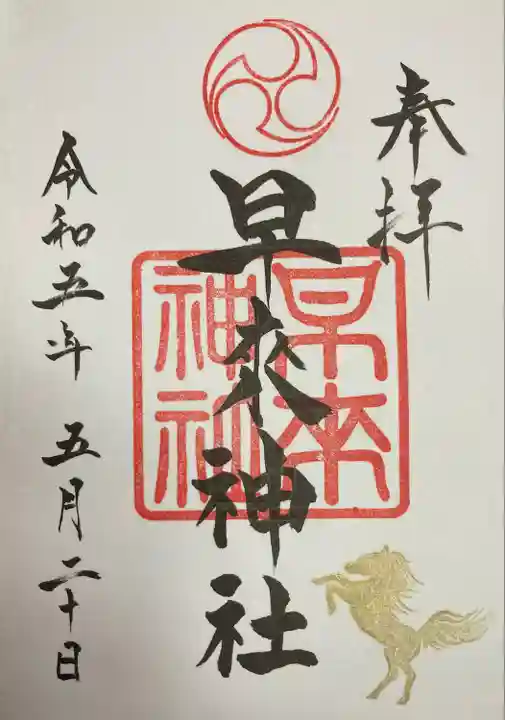 奉拝
早来神社
早来神社
令和五年 五月二十日